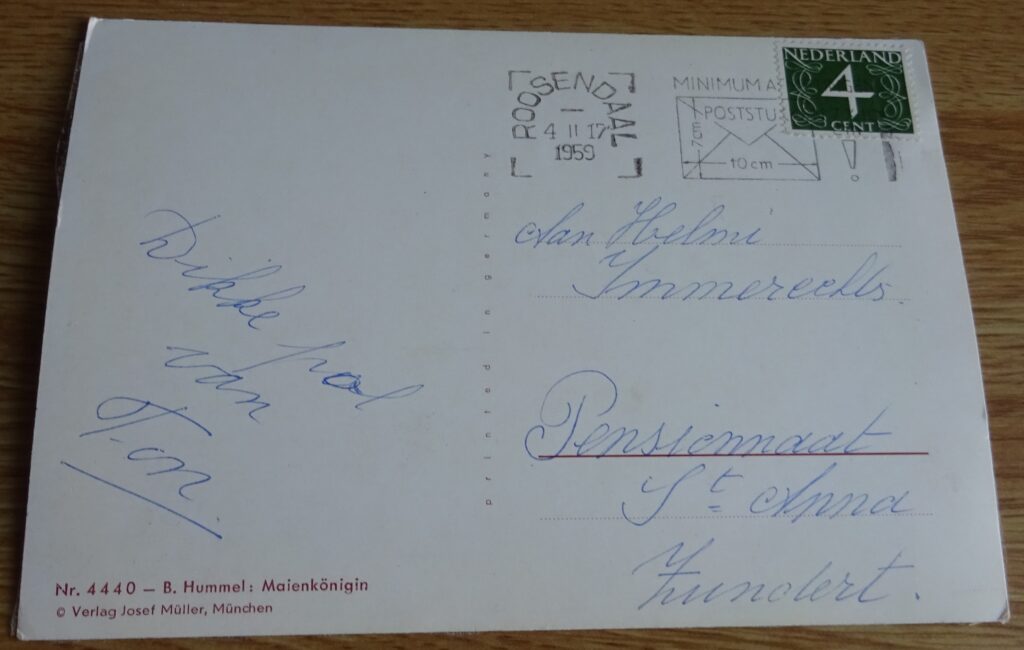 NEDERLAND
4
CENT
ROOSENDAAL
4 II 17
1959
MINIMUM A
POSTSTU
7
10 cm
!
Aan Helmi
Immereechts.
Pensionnaat
St Anna
Zundert.
Dikke pool
van
Ton.
printed in germany
Nr. 4440 – B. Hummel: Maienkönigin
© Verlag Josef Müller, München